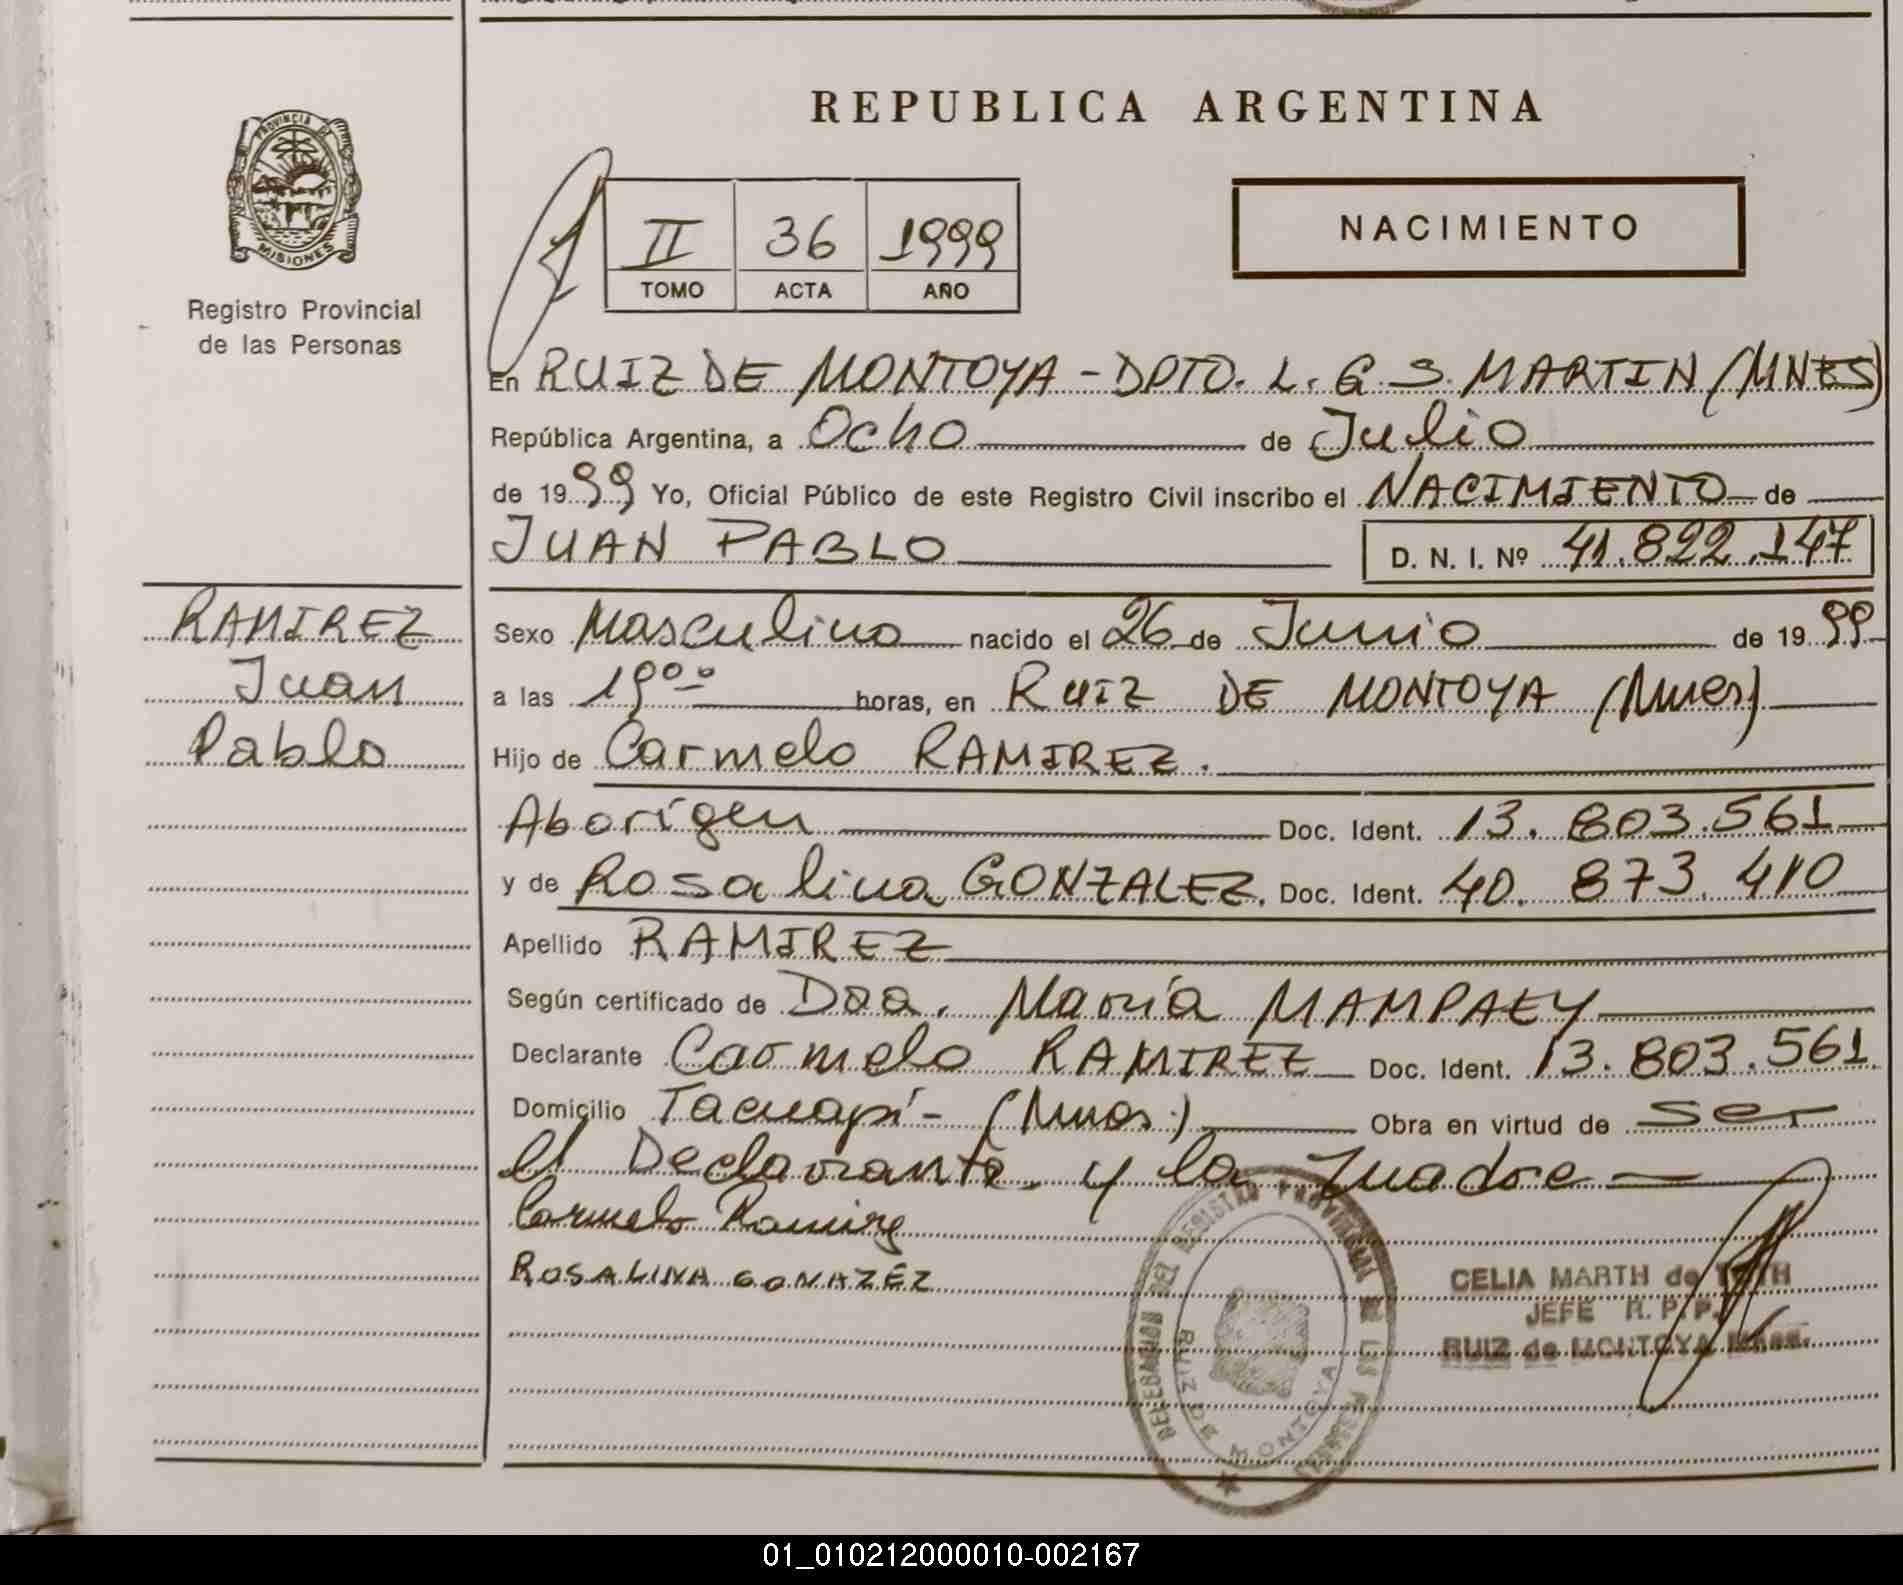 REPUBLICA ARGENTINA
PROVINCIA DE
MISIONES
Registro Provincial
de las Personas
II 36 1999
TOMO ACTA AÑO
NACIMIENTO
En RUIZ DE MONTOYA - DPTO. L. G. S. MARTIN (MNES)
República Argentina, a Ocho de Julio
de 1999 Yo, Oficial Público de este Registro Civil inscribo el NACIMIENTO de
JUAN PABLO D. N. I. Nº 41.822.147
RAMIREZ
Juan
Pablo
Sexo Masculino nacido el 26 de Junio de 1999
a las 19⁰⁰ horas, en RUIZ DE MONTOYA (Mnes)
Hijo de Carmelo RAMIREZ.
Aborígen Doc. Ident. 13.803.561
y de Rosalina GONZALEZ. Doc. Ident. 40.873.410
Apellido RAMIREZ
Según certificado de Dra. María MAMPAEY
Declarante Carmelo RAMIREZ Doc. Ident. 13.803.561
Domicilio Tacuapí - (Mnes.) Obra en virtud de ser
el Declarante y la madre
Carmelo Ramirez
ROSALINA GONAZEZ
DELEGACION DEL REGISTRO PROVINCIAL DE LAS PERSONAS
RUIZ DE MONTOYA
CELIA MARTH de TOTH
JEFE R. P. P.
RUIZ de MONTOYA Mnes.
01_010212000010-002167